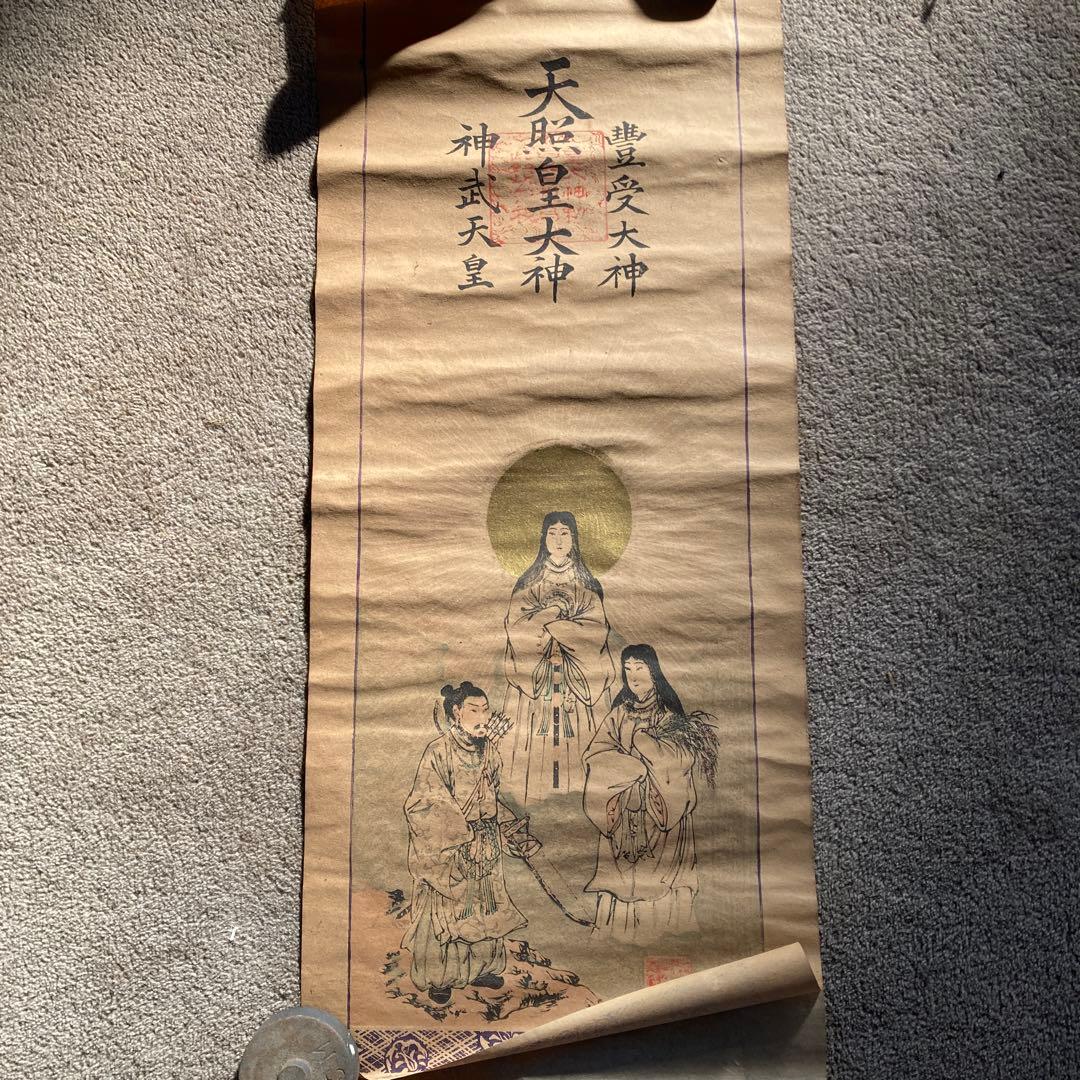 豐受大神
天照皇大神
神武天皇